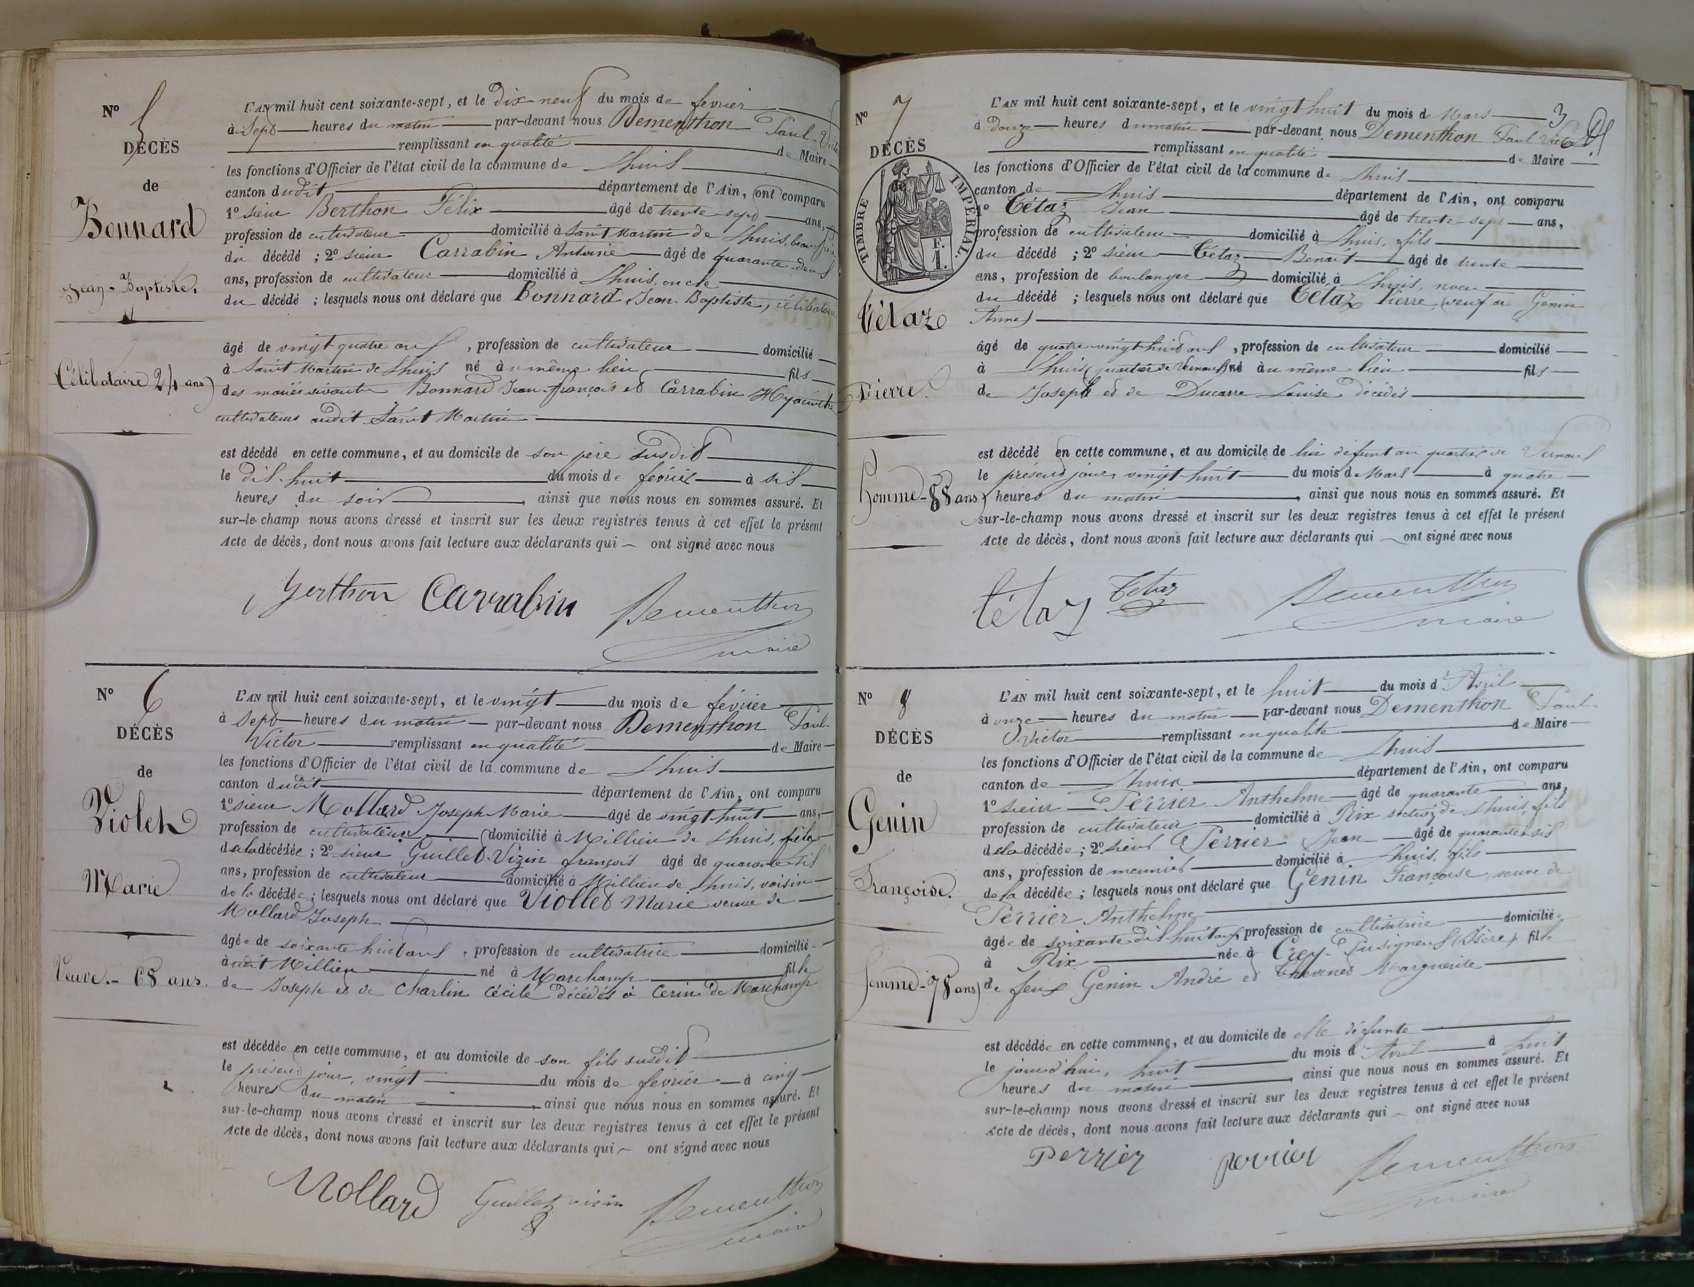 N° 5
DÉCÈS
de
Bonnard
Jean-Baptiste.
Célibataire 24 ans
L'AN mil huit cent soixante-sept, et le dix neuf du mois de février
à sept heures du matin par-devant nous Dementhon Paul-Victor
remplissant en qualité de Maire
les fonctions d'Officier de l'état civil de la commune de Lhuis
canton dudit département de l'Ain, ont comparu
1° sieur Berthon Félix âgé de trente sept ans,
profession de cultivateur domicilié à Saint Martin de Lhuis, beau-frère
du décédé ; 2° sieur Carrabin Antoine âgé de quarante deux
ans, profession de cultivateur domicilié à Lhuis, oncle
du décédé ; lesquels nous ont déclaré que Bonnard Jean-Baptiste, célibataire
âgé de vingt quatre ans, profession de cultivateur domicilié
à Saint Martin de Lhuis né au même lieu fils
des mariés vivants Bonnard Jean-françois et Carrabin Hyacinthe
cultivateurs audit Saint Martin
est décédé en cette commune, et au domicile de son père susdit
le dix-huit du mois de février à six
heures du soir, ainsi que nous nous en sommes assuré. Et
sur-le-champ nous avons dressé et inscrit sur les deux registres tenus à cet effet le présent
acte de décès, dont nous avons fait lecture aux déclarants qui ont signé avec nous
Berthon Carrabin Dementhon
maire
N° 6
DÉCÈS
de
Violet
Marie
Veuve.- 68 ans.
L'AN mil huit cent soixante-sept, et le vingt du mois de février
à sept heures du matin par-devant nous Dementhon Paul-
Victor remplissant en qualité de Maire
les fonctions d'Officier de l'état civil de la commune de Lhuis
canton dudit département de l'Ain, ont comparu
1° sieur Mollard Joseph Marie âgé de vingt huit ans,
profession de cultivateur domicilié à Millieu de Lhuis, fils
de la décédée ; 2° sieur Guillet-Vizin françois âgé de quarante six
ans, profession de cultivateur domicilié à Millieu de Lhuis, voisin
de la décédée ; lesquels nous ont déclaré que Viollet Marie veuve de
Mollard Joseph
âgée de soixante huit ans, profession de cultivatrice domiciliée
à audit Millieu né à Marchamp fille
de Joseph et de Charlin Cécile décédés à Cerin de Marchamp
est décédée en cette commune, et au domicile de son fils susdit
le présent jour, vingt du mois de février à cinq
heures du matin, ainsi que nous nous en sommes assuré. Et
sur-le-champ nous avons dressé et inscrit sur les deux registres tenus à cet effet le présent
acte de décès, dont nous avons fait lecture aux déclarants qui ont signé avec nous
Mollard Guillet vizin Dementhon
maire
3
N° 7
DÉCÈS
de
TIMBRE IMPÉRIAL
F.
1.
Tétaz
Pierre.
Homme - 88 ans
L'AN mil huit cent soixante-sept, et le vingt huit du mois de Mars
à douze heures du matin par-devant nous Dementhon Paul Victor
remplissant en qualité de Maire
les fonctions d'Officier de l'état civil de la commune de Lhuis
canton de Lhuis département de l'Ain, ont comparu
1° Tétaz Jean âgé de trente sept ans,
profession de cultivateur domicilié à Lhuis, fils
du décédé ; 2° sieur Tétaz Benoit âgé de trente
ans, profession de boulanger domicilié à Lhuis, neveu
du décédé ; lesquels nous ont déclaré que Tétaz Pierre, veuf de Genin
Anne
âgé de quatre-vingt huit ans, profession de cultivateur domicilié
à Lhuis (quartier de Vernoux) né au même lieu fils
de Joseph et de Ducarre Louise décédés
est décédé en cette commune, et au domicile de lui défunt au quartier de Vernoux
le présent jour, vingt huit du mois de Mars à quatre
heures du matin, ainsi que nous nous en sommes assuré. Et
sur-le-champ nous avons dressé et inscrit sur les deux registres tenus à cet effet le présent
acte de décès, dont nous avons fait lecture aux déclarants qui ont signé avec nous
Tétaz Tétaz Dementhon
maire
N° 8
DÉCÈS
de
Genin
Françoise.
Femme - 78 ans
L'AN mil huit cent soixante-sept, et le huit du mois d'Avril
à onze heures du matin par-devant nous Dementhon Paul-
Victor remplissant en qualité de Maire
les fonctions d'Officier de l'état civil de la commune de Lhuis
canton de Lhuis département de l'Ain, ont comparu
1° sieur Perrier Anthelme âgé de quarante ans,
profession de cultivateur domicilié à Rix section de Lhuis, fils
de la décédée ; 2° sieur Perrier Jean âgé de quarante six
ans, profession de meunier domicilié à Lhuis, fils
de la décédée ; lesquels nous ont déclaré que Genin Françoise, veuve de
Perrier Anthelme
âgée de soixante dix huit ans, profession de cultivatrice domiciliée
à Rix née à Crey-Pusignieu (Isère) fille
de feux Genin André et Thevenet Marguerite
est décédée en cette commune, et au domicile de elle défunte
le jourd'hui, huit du mois d'Avril à huit
heures du matin, ainsi que nous nous en sommes assuré. Et
sur-le-champ nous avons dressé et inscrit sur les deux registres tenus à cet effet le présent
acte de décès, dont nous avons fait lecture aux déclarants qui ont signé avec nous
Perrier perrier Dementhon
maire